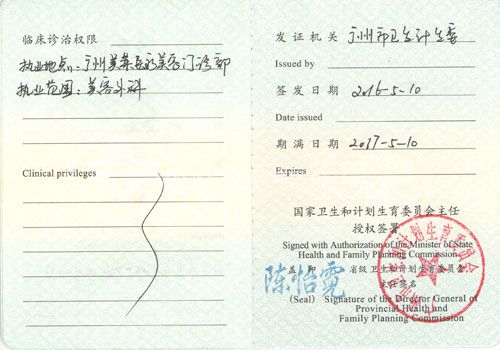 临床诊治权限
执业地点：广州美莱医疗美容门诊部
执业范围：美容外科
Clinical privileges
发证机关 广州市卫生计生委
Issued by
签发日期 2016-5-10
Date issued
期满日期 2017-5-10
Expires
国家卫生和计划生育委员会主任
授权签署
Signed with Authorization of the Minister of State
Health and Family Planning Commission
盖印 省级卫生和计划生育委员会
主任签名
陈怡霓
(Seal) Signature of the Director General of
Provincial Health and
Family Planning Commission